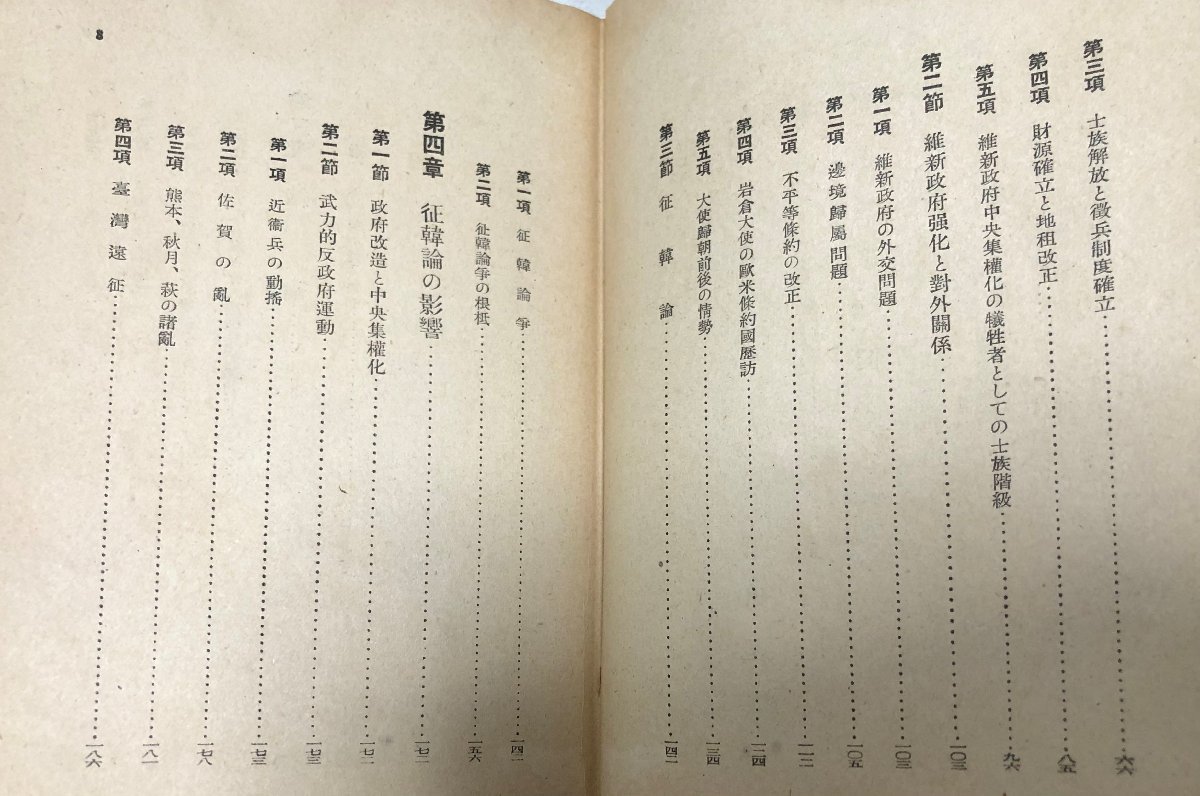 第三項 士族解放と徵兵制度確立……六六
第四項 財源確立と地租改正……八五
第五項 維新政府中央集權化の犧牲者としての士族階級……九六
第二節 維新政府强化と對外關係……一〇三
第一項 維新政府の外交問題……一〇三
第二項 邊境歸屬問題……一〇五
第三項 不平等條約の改正……一一二
第四項 岩倉大使の歐米條約國歷訪……一二四
第五項 大使歸朝前後の情勢……一三四
第三節 征韓論……一四二
第一項 征韓論爭……一四二
第二項 征韓論爭の根柢……一五六
第四章 征韓論の影響……一七二
第一節 政府改造と中央集權化……一七二
第二節 武力的反政府運動……一七三
第一項 近衞兵の動搖……一七三
第二項 佐賀の亂……一七八
第三項 熊本、秋月、萩の諸亂……一八一
第四項 臺灣遠征……一八六